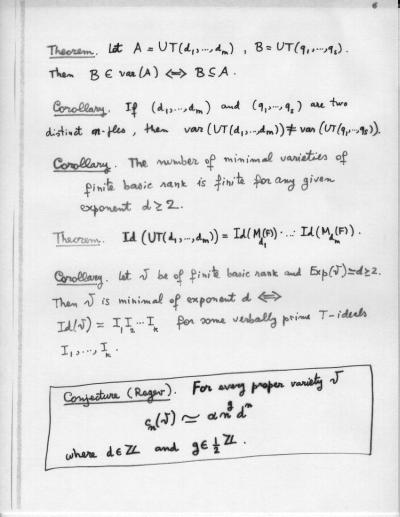 6
Theorem. Let A = UT(d₁,...,dₘ) , B = UT(q₁,...,qₛ).
Then B ∈ var(A) ⟺ B ⊆ A.
Corollary. If (d₁,...,dₘ) and (q₁,...,qₛ) are two
distinct m-ples, then var(UT(d₁,...,dₘ)) ≠ var(UT(q₁,...,qₛ)).
Corollary. The number of minimal varieties of
finite basic rank is finite for any given
exponent d ≥ 2.
Theorem. Id(UT(d₁,...,dₘ)) = Id(M_d₁(F)) ... Id(M_dₘ(F)).
Corollary. Let 𝒱 be of finite basic rank and Exp(𝒱)=d≥2.
Then 𝒱 is minimal of exponent d ⟺
Id(𝒱) = I₁I₂...Iₖ for some verbally prime T-ideals
I₁,...,Iₖ.
Conjecture (Regev). For every proper variety 𝒱
cₙ(𝒱) ≃ α n^g d^n
where d∈ℤ and g∈ ½ ℤ.